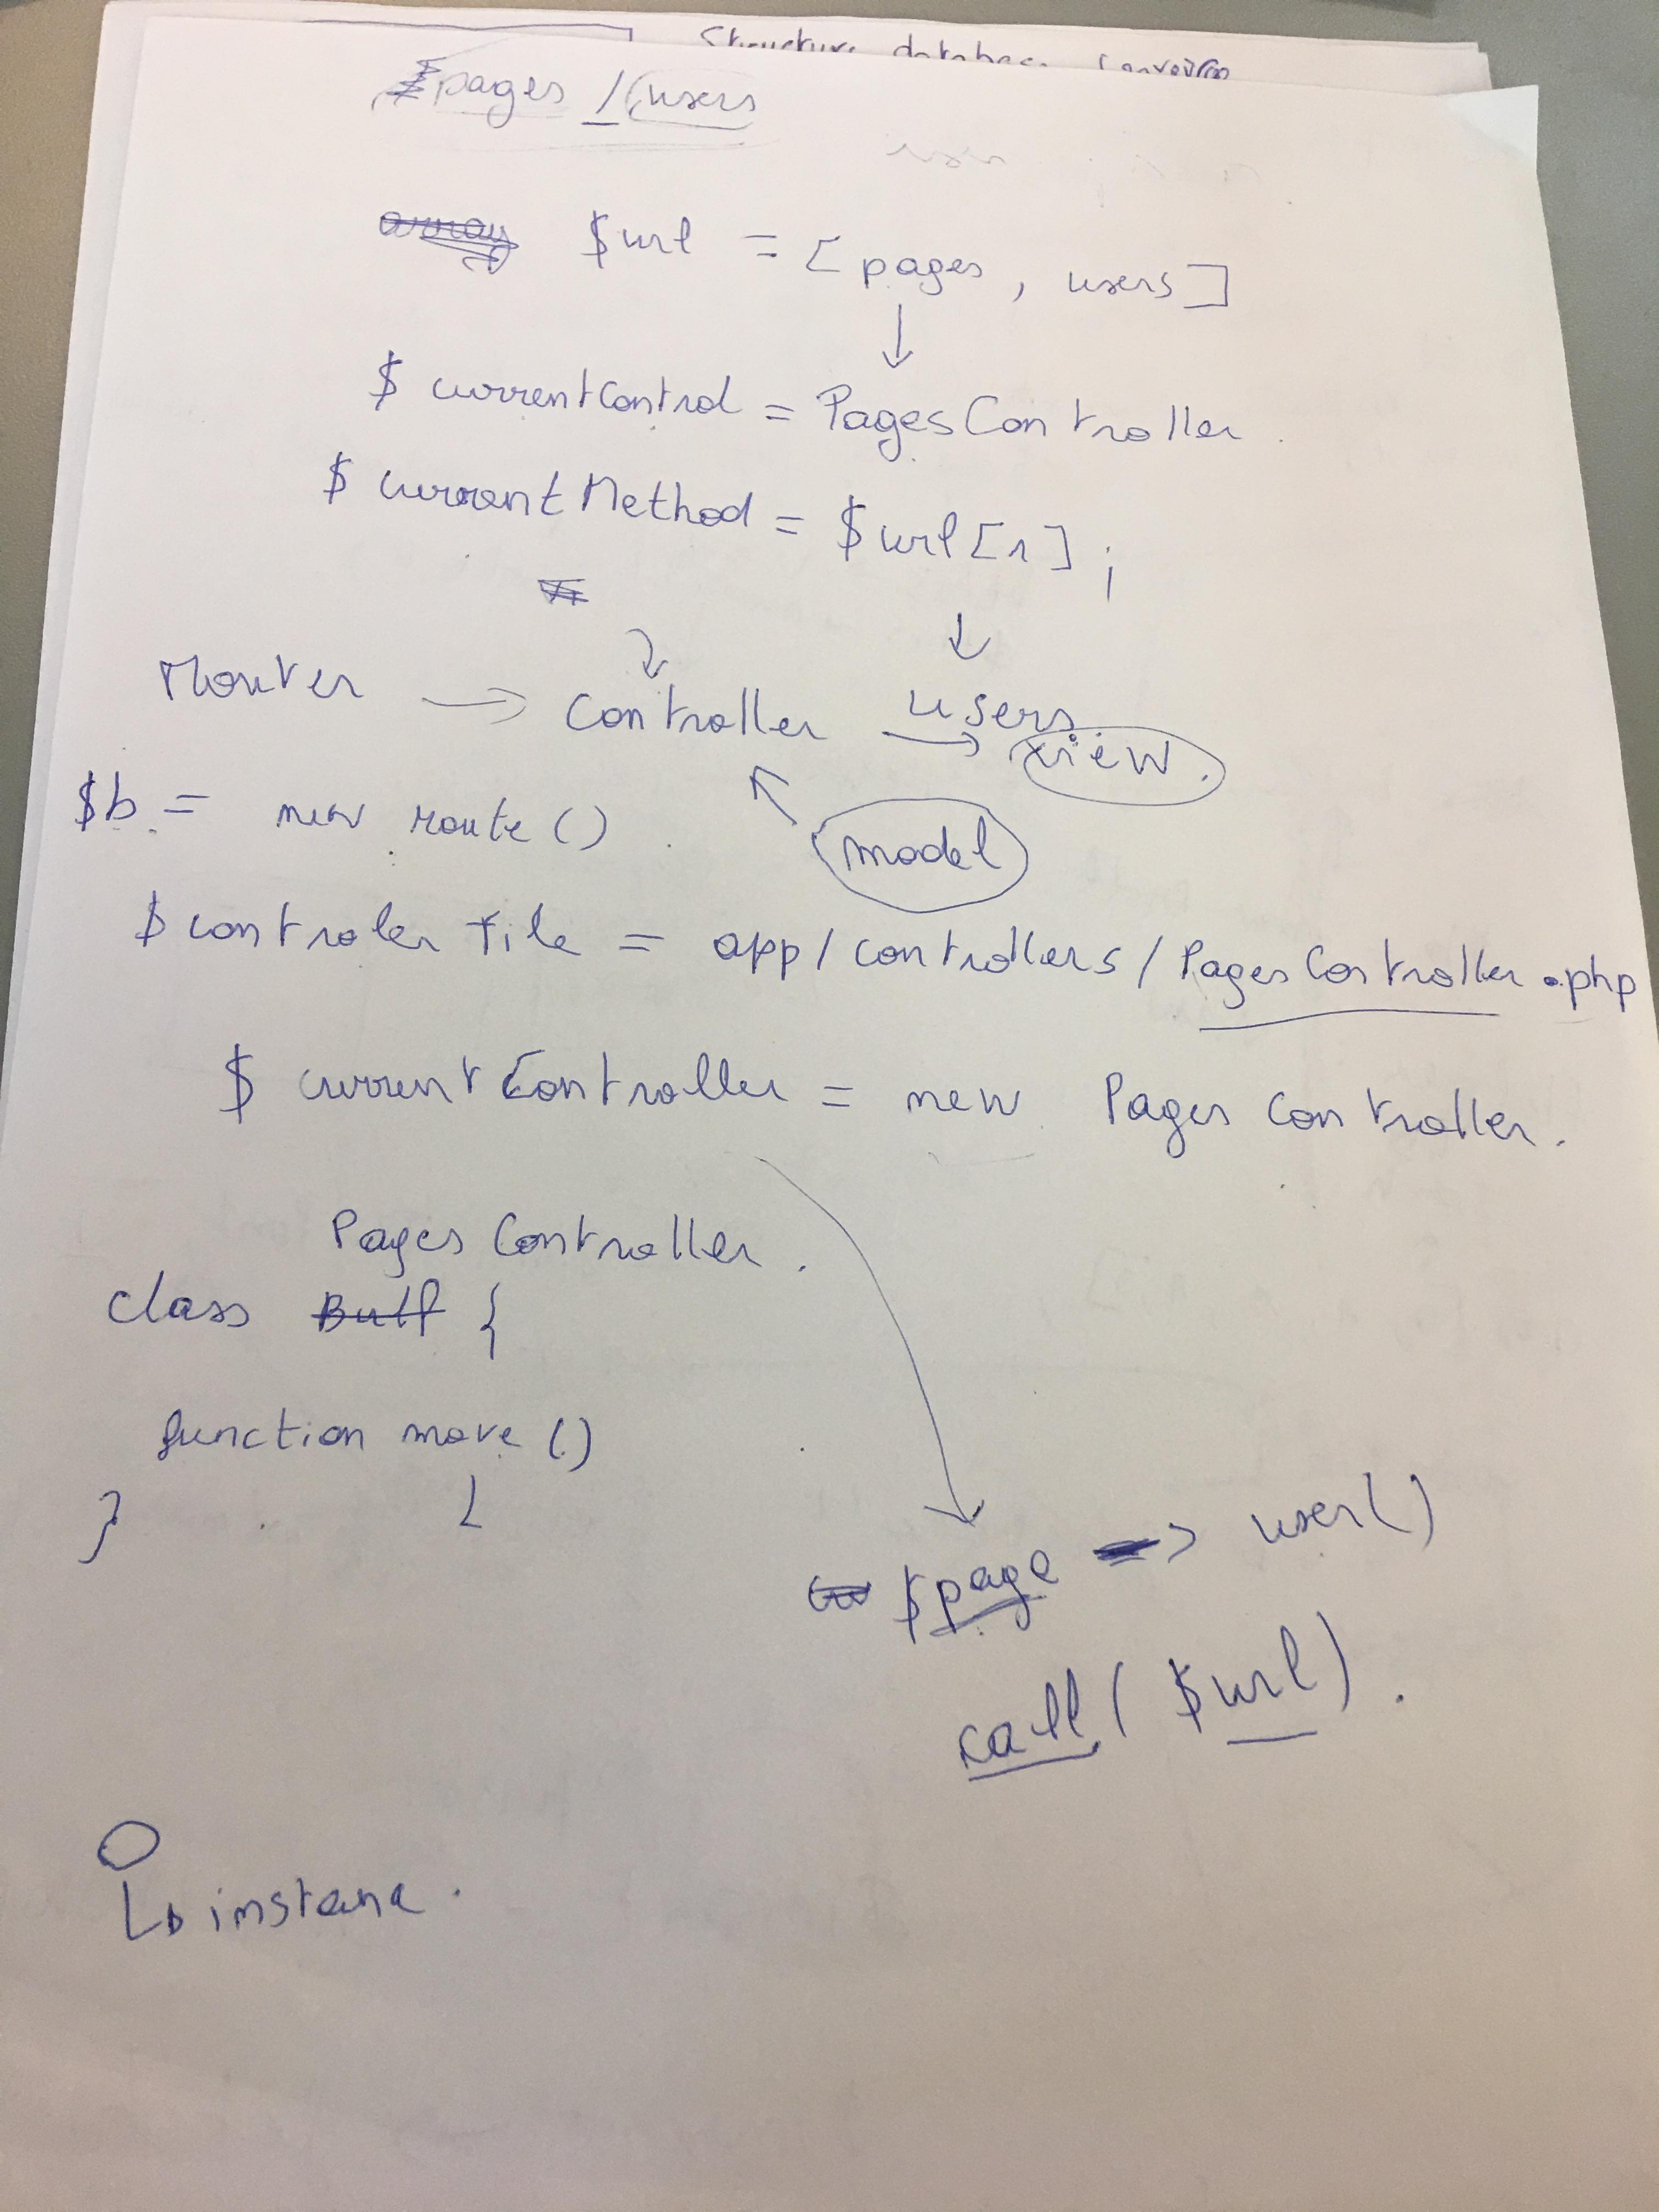 Structure database
pages / users
$url = [pages, users]
↓
$ currentControl = PagesController.
$ currentMethod = $url[1];
↓
Router → Controller → users
view.
$b = new route()
model
$controler file = app/controllers/PagesController.php
$ currentController = new Pages Controller.
Pages Controller.
class Bull {
function move()
}
{
$page => user()
call($url).
↳ instance.